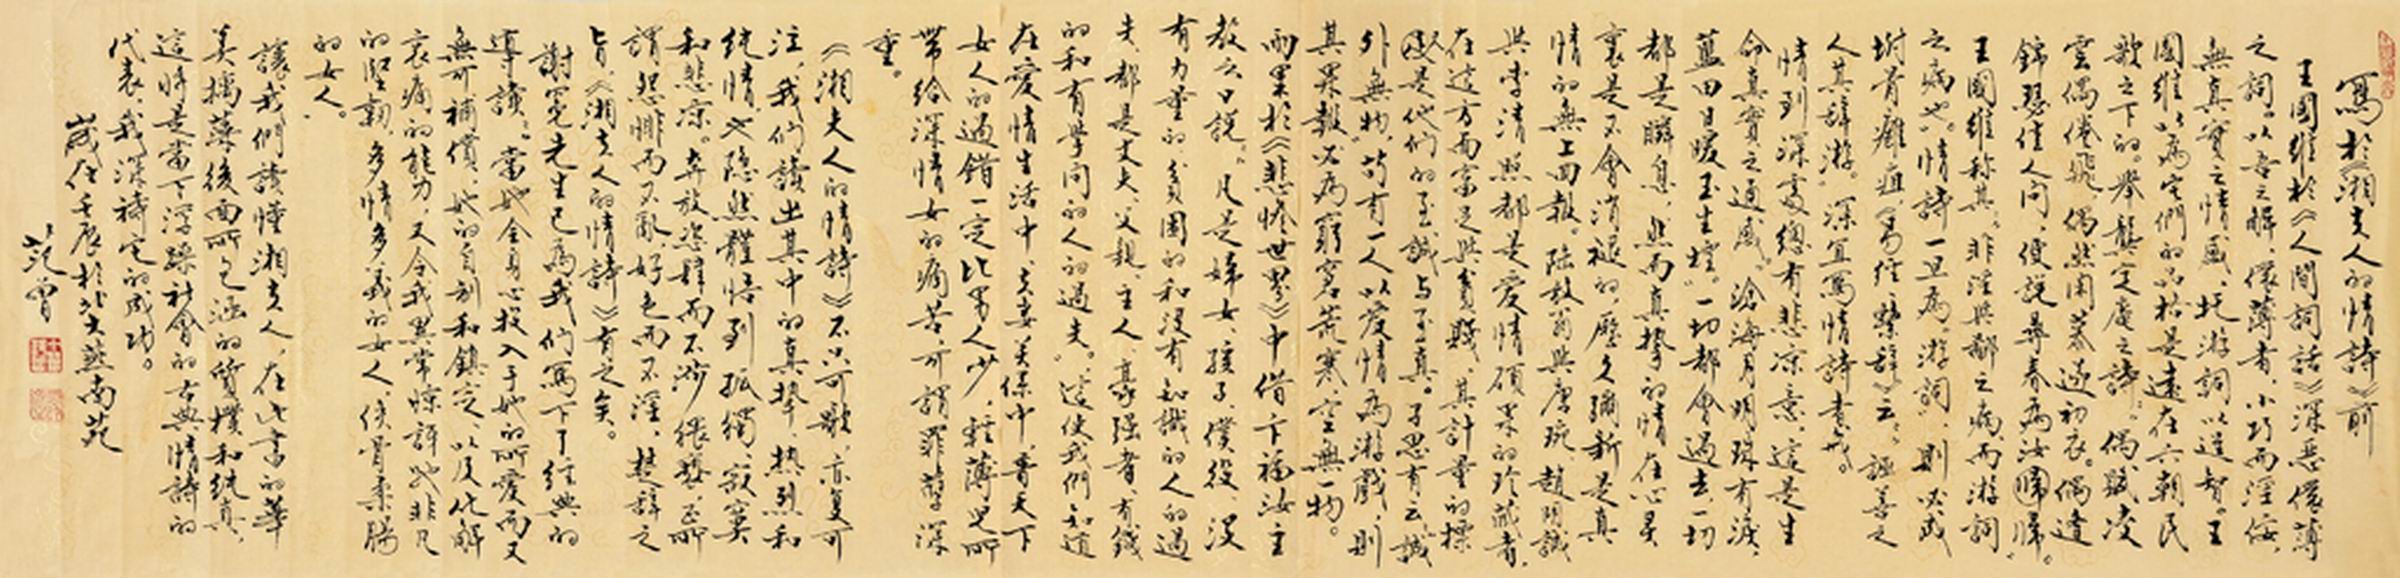 寫於《湘夫人的情詩》前
王國維於《人間詞話》深惡儇薄
之詞。以吾之解，儇薄者，小巧而淫佞，
無真實之情感，托游詞以逞智。王
國維以為它們的品格是遠在六朝民
歌之下的。舉龔定庵之詩。偶賦凌
雲偶倦飛，偶然閑慕遂初衣。偶逢
錦瑟佳人問，便說尋春為汝歸。
王國維称其。非淫與鄙之病，而游詞
之病也。情詩一旦為。游詞，則必成
坿骨癰疽，《易經·繫辭》云：誣善之
人其辭游。深宜寫情詩者戒。
情到深處總有悲凉意，這是生
命真實之通感。滄海月明珠有淚，
藍田日暖玉生煙。一切都會過去，一切
都是瞬息，然而真摯的情在心灵
裏是不會消褪的，歷久彌新是真
情的無上回報。陸放翁與唐琬，趙明誠
與李清照都是愛情碩果的珍藏者，
在這方面富足與貧賤，其計量的標
是他們的至誠与至真。子思有云：誠
外無物，苟有一人以愛情為游戲，則
其果報必為窮窘荒寒，空無一物。
而果於《悲慘世界》中借卞福汝主
教之口說。凡是婦女、孩子、僕役、沒
有力量的、貧困的和沒有知識的人的過
失，都是丈夫、父親、主人、豪强者、有錢
的和有學問的人的過失。這使我們知道
在愛情生活中，夫妻关係中，普天下
女人的過錯一定比男人少，輕薄兒所
帶給深情女的痛苦，可謂罪孽深
重。
《湘夫人的情詩》不只可歌，亦复可
泣，我们讀出其中的真摯、熱烈和
純情，必隐然體悟到孤獨、寂寞
和悲凉。奔放恣肆而不涉猥褻，所
謂怨悱而不亂，好色而不淫，楚辭之
旨，《湘夫人的情詩》有之矣。
謝冕先生已為我们寫下了經典的
導讀。當她全身心投入于她的所愛而又
無可補償，她的自刎和鎮定，以及化解
哀痛的能力，又令我異常惊訝她非凡
的堅韌，多情多義的女人，俠骨柔腸
的女人。
讓我們讀懂湘夫人，在此書的華
美摛藻後面所包涵的質樸和純真，
這將是當下浮躁社會的古典情詩的
代表，我深祷它的成功。
歲在壬辰於北大燕南苑
范曾